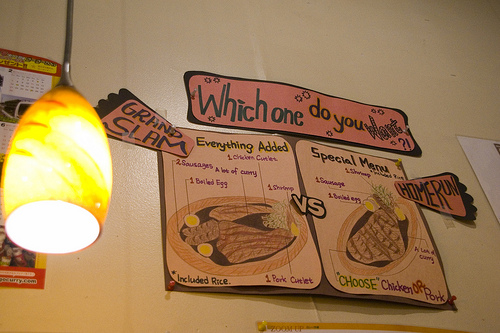 Which one do you
?!
GRAND
SLAM
Everything Added
1 Chicken Cutlet
2 Sausages
A lot of curry
1 Boiled Egg
1 Shrimp
*Included Rice.
1 Pork Cutlet
VS
Special Menu
1 Shrimp
Included Rice
1 Sausage
1 Boiled egg
HOMERUN
A Lot of
curry
"CHOOSE" Chicken OR Pork